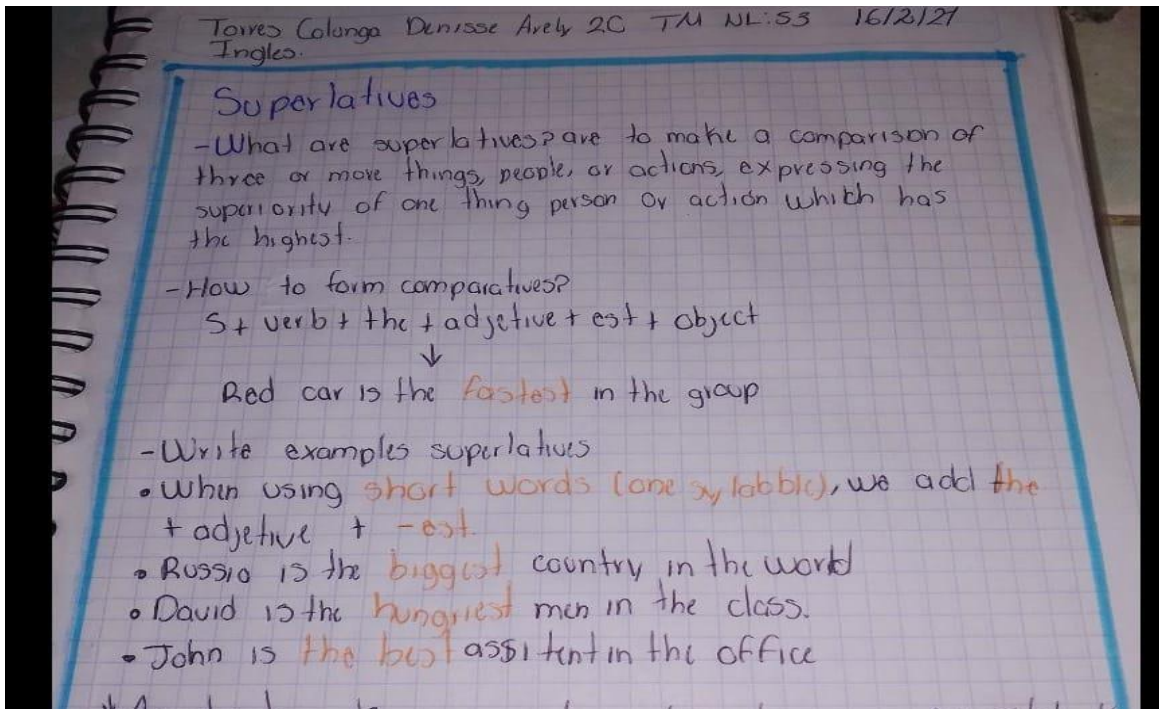 Torres Colunga Denisse Arely 2C TM NL:53 16/2/21
Ingles.
Superlatives
-What are superlatives? are to make a comparison of
three or more things, people, or actions, expressing the
superiority of one thing person or action which has
the highest.
-How to form comparatives?
S+ verb + the + adjetive + est + object
↓
Red car is the fastest in the group
-Write examples superlatives
• When using short words (one syllabble), we add the
+ adjetive + -est.
• Russia is the biggest country in the world
• David is the hungriest men in the class.
• John is the best assitent in the office